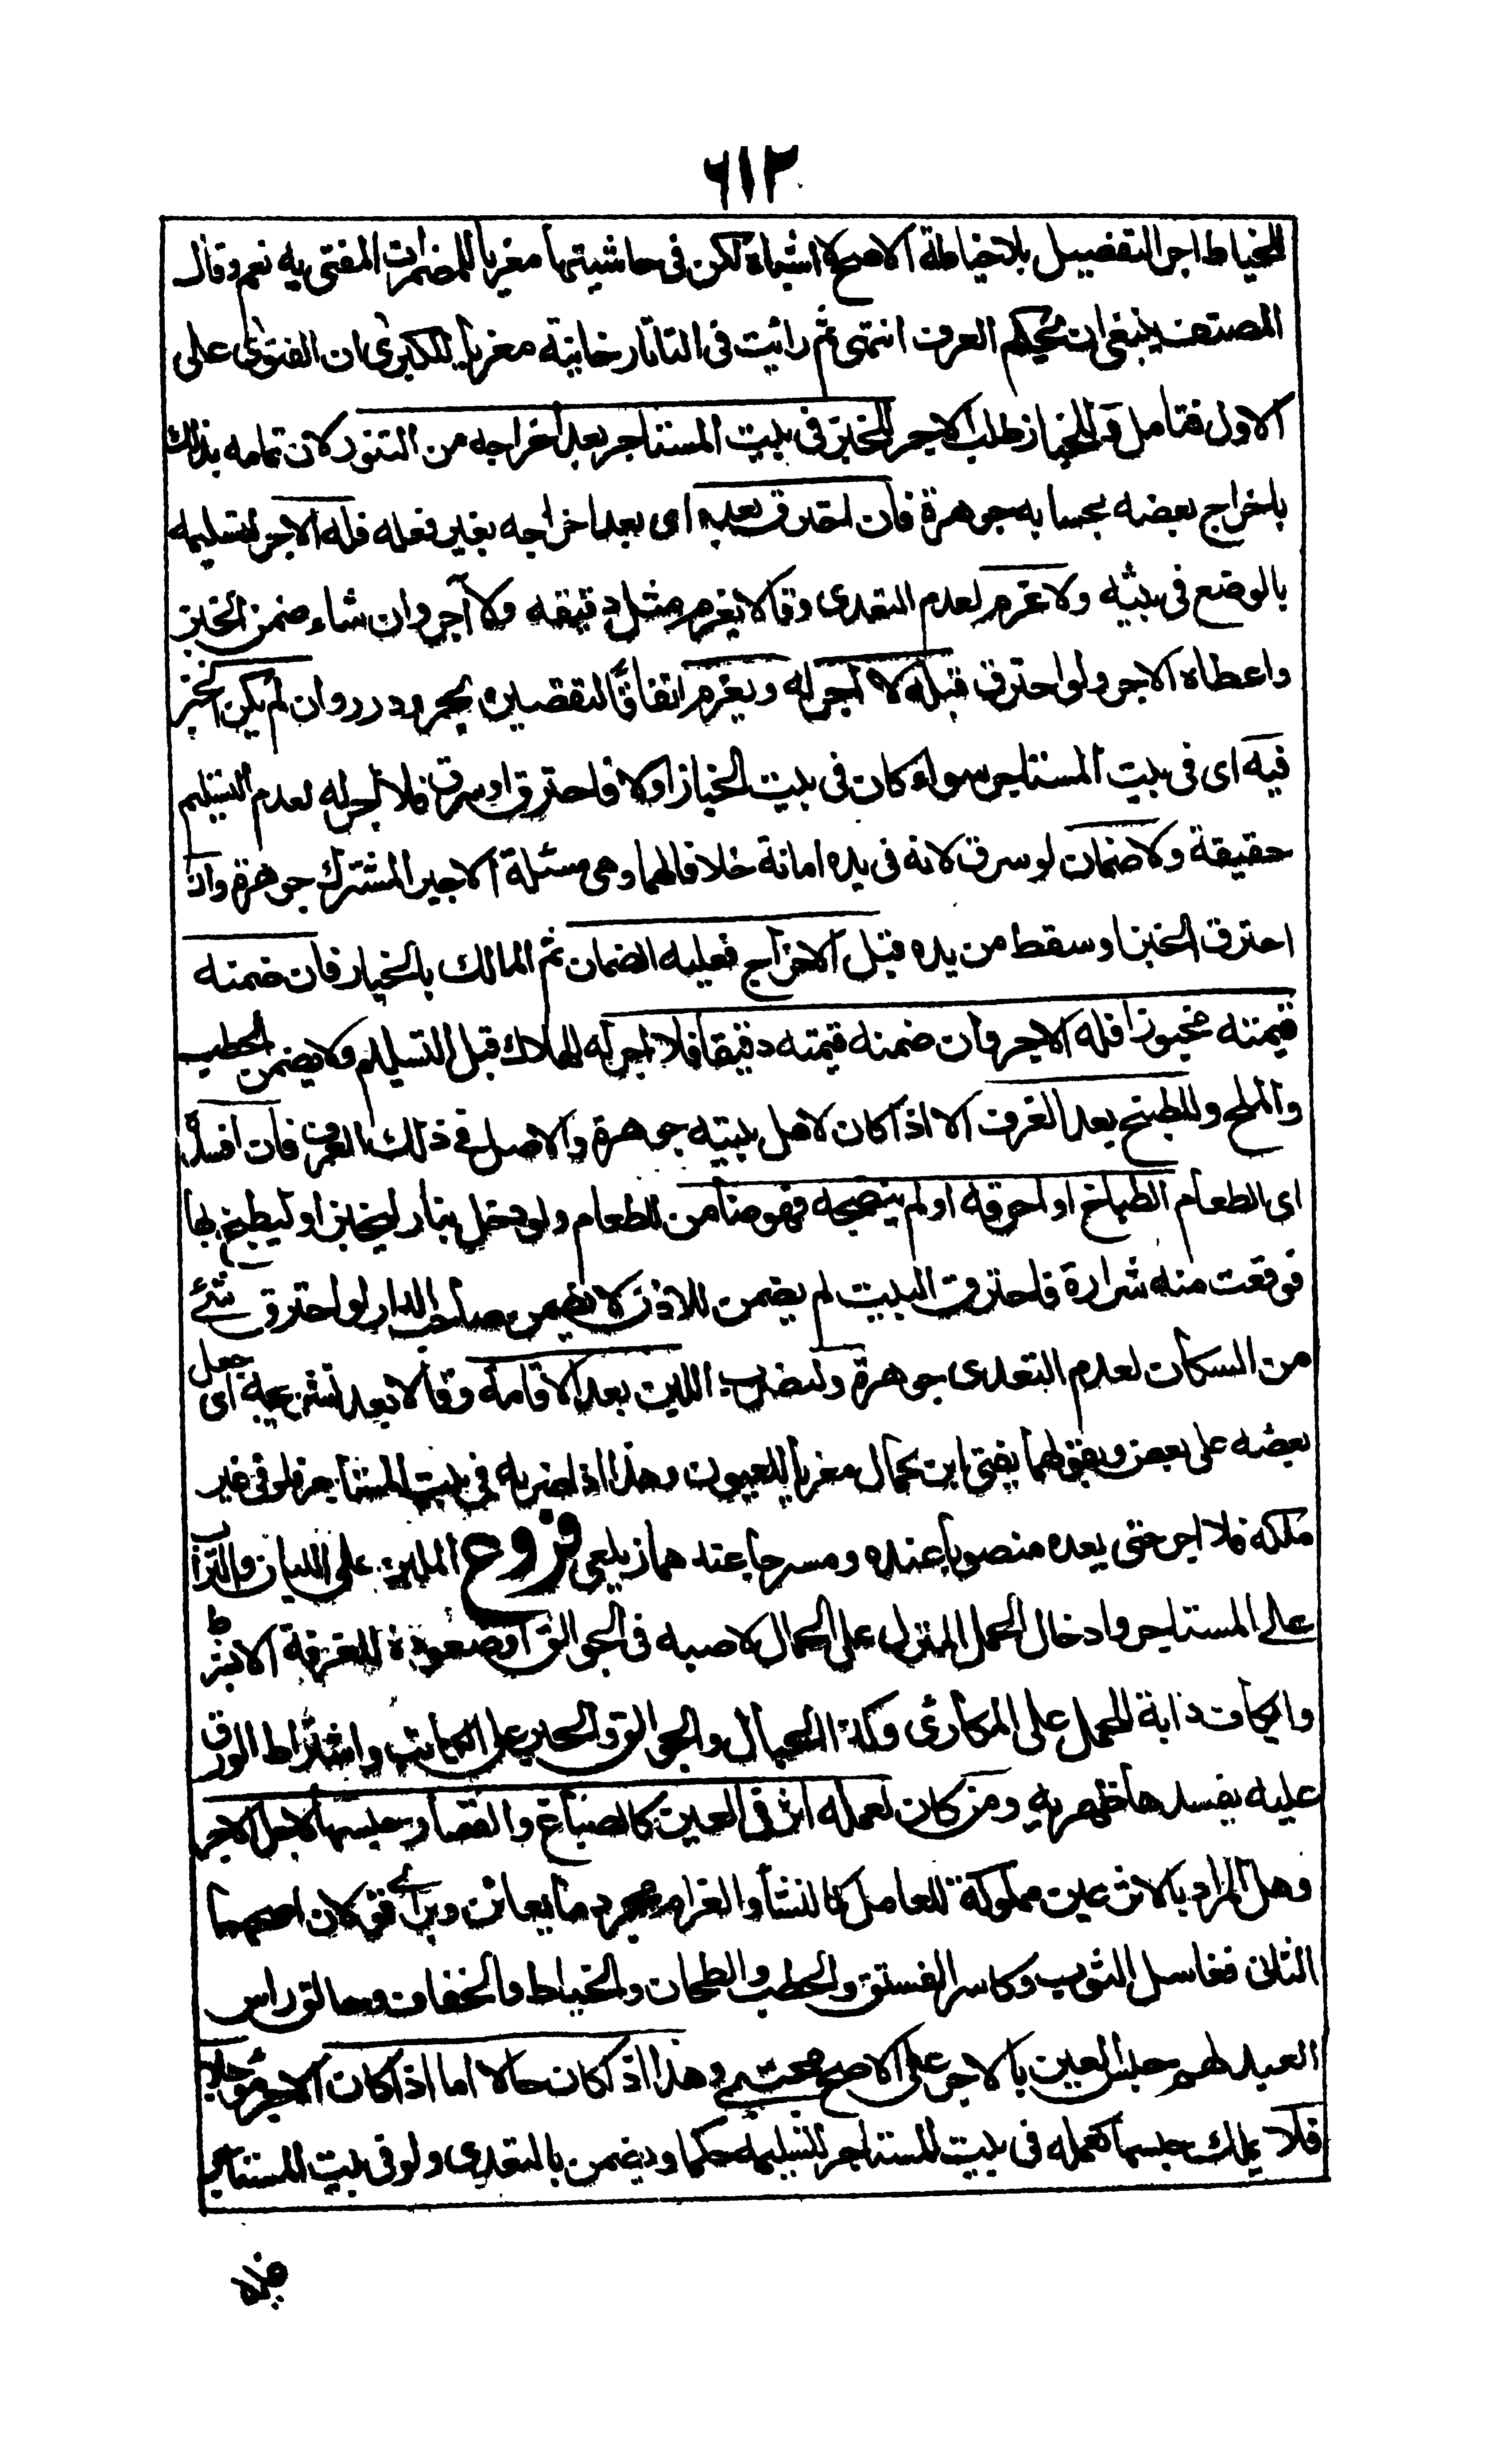 ٦١٢
للخياط اجر التفصيل بلا خياطة الاصح لا اشباه لكن فى حاشيتها معزيا للمضمرات المفتى به نعم وقال
المصنف ينبغى ان يحكم العرف انتهى ثم رايت فى التاتارخانية معزيا للكبرى ان الفتوى على
الاول فتامل و للخباز طلب الاجر للخبز فى بيت المستاجر بعد اخراجه من التنور لان تمامه بذلك
باخراج بعضه بحسابه جوهرة فان احترق بعده اى بعد اخراجه بغير فعله فله الاجر لتسليمه
بالوضع فى بيته ولا غرم لعدم التعدى وقالا يغرم مثل دقيقه ولا اجر وان شاء ضمن الخبز
واعطاه الاجر ولو احترق قبله لا اجر له ويغرم اتفاقا لتقصيره بحر ودرر وان لم يكن الخبز
فيه اى فى بيت المستاجر سواء كان فى بيت الخباز اولا فاحترق او سرق فلا اجر له لعدم التسليم
حقيقة ولا ضمان لو سرق لانه فى يده امانة خلافا لهما وهى مسئلة الاجير المشترك جوهرة وان
احترق الخبز او سقط من يده قبل الاخراج فعليه الضمان ثم المالك بالخيار فان ضمنه
قيمته مخبوزا فله الاجر وان ضمنه قيمته دقيقا فلا اجر له للهلاك قبل التسليم ولا يضمن الحطب
والملح وللطبخ بعد الغرف الا اذا كان لاهل بيته جوهرة والاصل فى ذلك العرف فان افسده
اى الطعام الطباخ او احرقه او لم ينضجه فهو ضامن للطعام ولو دخل بنار ليخبز او ليطبخ بها
فوقعت منه شرارة فاحترق البيت لم يضمن للاذن لا يضمن صاحب الدار لو احترق شئ
من السكان لعدم التعدى جوهرة ولضرب اللبن بعد الاقامة وقالا بعد تشريجه اى جعل
بعضه على بعض وبقولهما يفتى ابن كمال معزيا للعيون وهذا اذا ضربه فى بيت المستاجر فلو فى غير
ملكه فلا اجر حتى يعده منصوبا عنده ومشرجا عندهما زيلعى فروع الملبن على اللبان والتراب
على المستاجر وادخال الحمل المنزل على الحمال لا صبه فى الجوالق او صعوده للغرفة الا بشرط
وايكاف دابة للحمل على المكارى وكذا الحبال والجوالق والحبر على الكاتب واشتراط الورق
عليه يفسدها ظهيرية ومن كان لعمله اثر فى العين كالصباغ والقصار حبسها لاجل الاجر
وهل المراد بالاثر عين مملوكة للعامل كالنشا والغراء ام مجرد ما يعاين ويرى قولان اصحهما
الثانى فغاسل الثوب وكاسر الفستق والحطب والطحان والخياط والخفاف وحالق راس
العبد لهم حبس العين بالاجر على الاصح مجتبى وهذا اذا كان حالا اما اذا كان الاجر مؤجلا
فلا يملك حبسها كعمله فى بيت المستاجر لتسليمه حكما ويضمن بالتعدى ولو فى بيت المستاجر